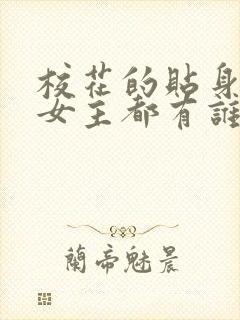 校花的貼身
女王都有誰
蘭帝魅晨